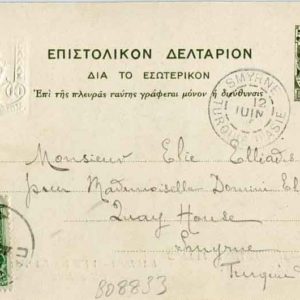 ΕΠΙΣΤΟΛΙΚΟΝ ΔΕΛΤΑΡΙΟΝ
ΔΙΑ ΤΟ ΕΣΩΤΕΡΙΚΟΝ
Ἐπὶ τῆς πλευρᾶς ταύτης γράφεται μόνον ἡ διεύθυνσις
SMYRNE
12
JUIN
TURQUIE D'ASIE
Monsieur Elie Elliadi
pour Mademoiselle
Quay House
Smyrne
Turquie
808833